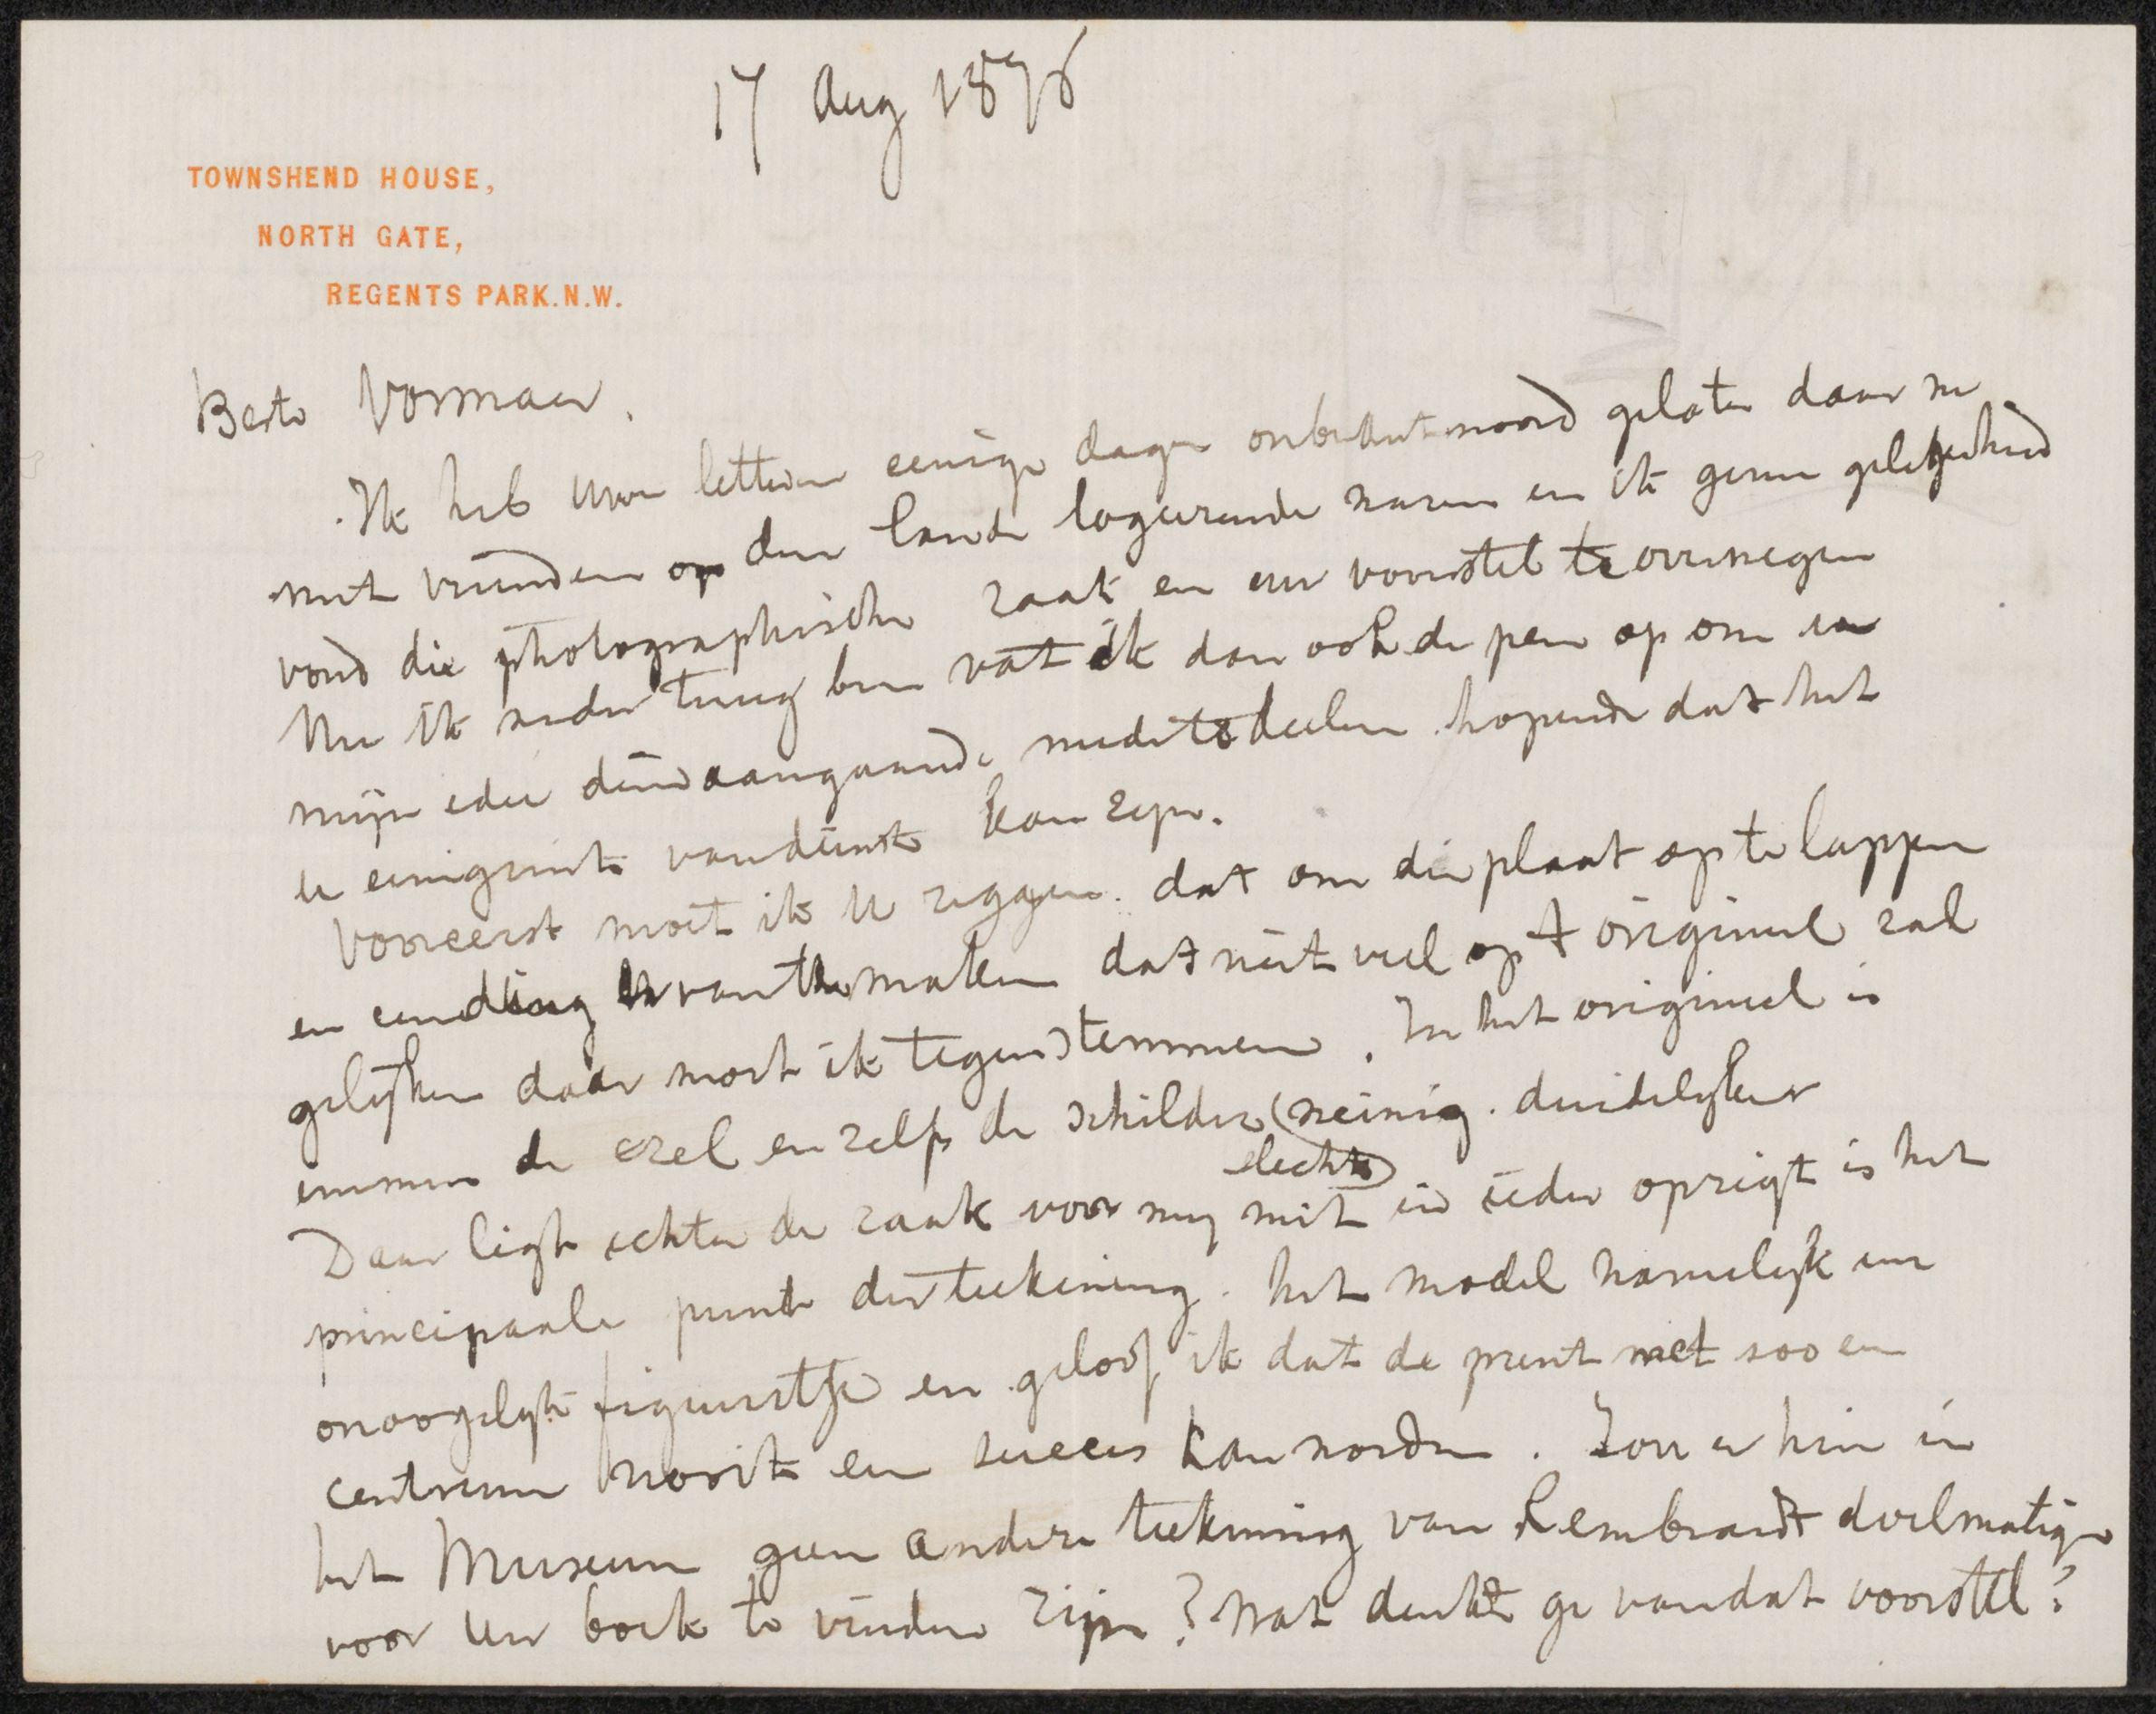 17 Aug 1876
TOWNSHEND HOUSE,
NORTH GATE,
REGENTS PARK. N.W.
Beste Vosmaer.
Ik heb uwe letteren eenige dagen onbeantwoord gelaten daar we
met vrienden op den lande logeerende waren en ik geene gelegenheid
vond die photographische zaak en uw voorstel te overwegen
Nu ik weder terug ben vat ik dan ook de pen op om u
mijn idee dien aangaande mede te deelen hopende dat het
u eenigzints van dienst kan zijn.
Vooreerst moet ik U zeggen dat om die plaat op te lappen
en een ding van te maken dat niet veel op t origineel zal
gelijken daar moet ik tegenstemmen. In het origineel is
immers de ezel en zelfs de schilder weinig duidelijker
slechts
Daar ligt echter de zaak voor mij niet in ieder opzigt is het
principaale punt der teekening. het model namelijk een
onoogelijk figuurtje en geloof ik dat de prent met zoo en
centrum nooit en succes kan worden. Zou er hier in
het Museum geen andere teekening van Rembrandt doelmatig
voor uw boek te vinden zijn? Wat denkt ge van dat voorstel?